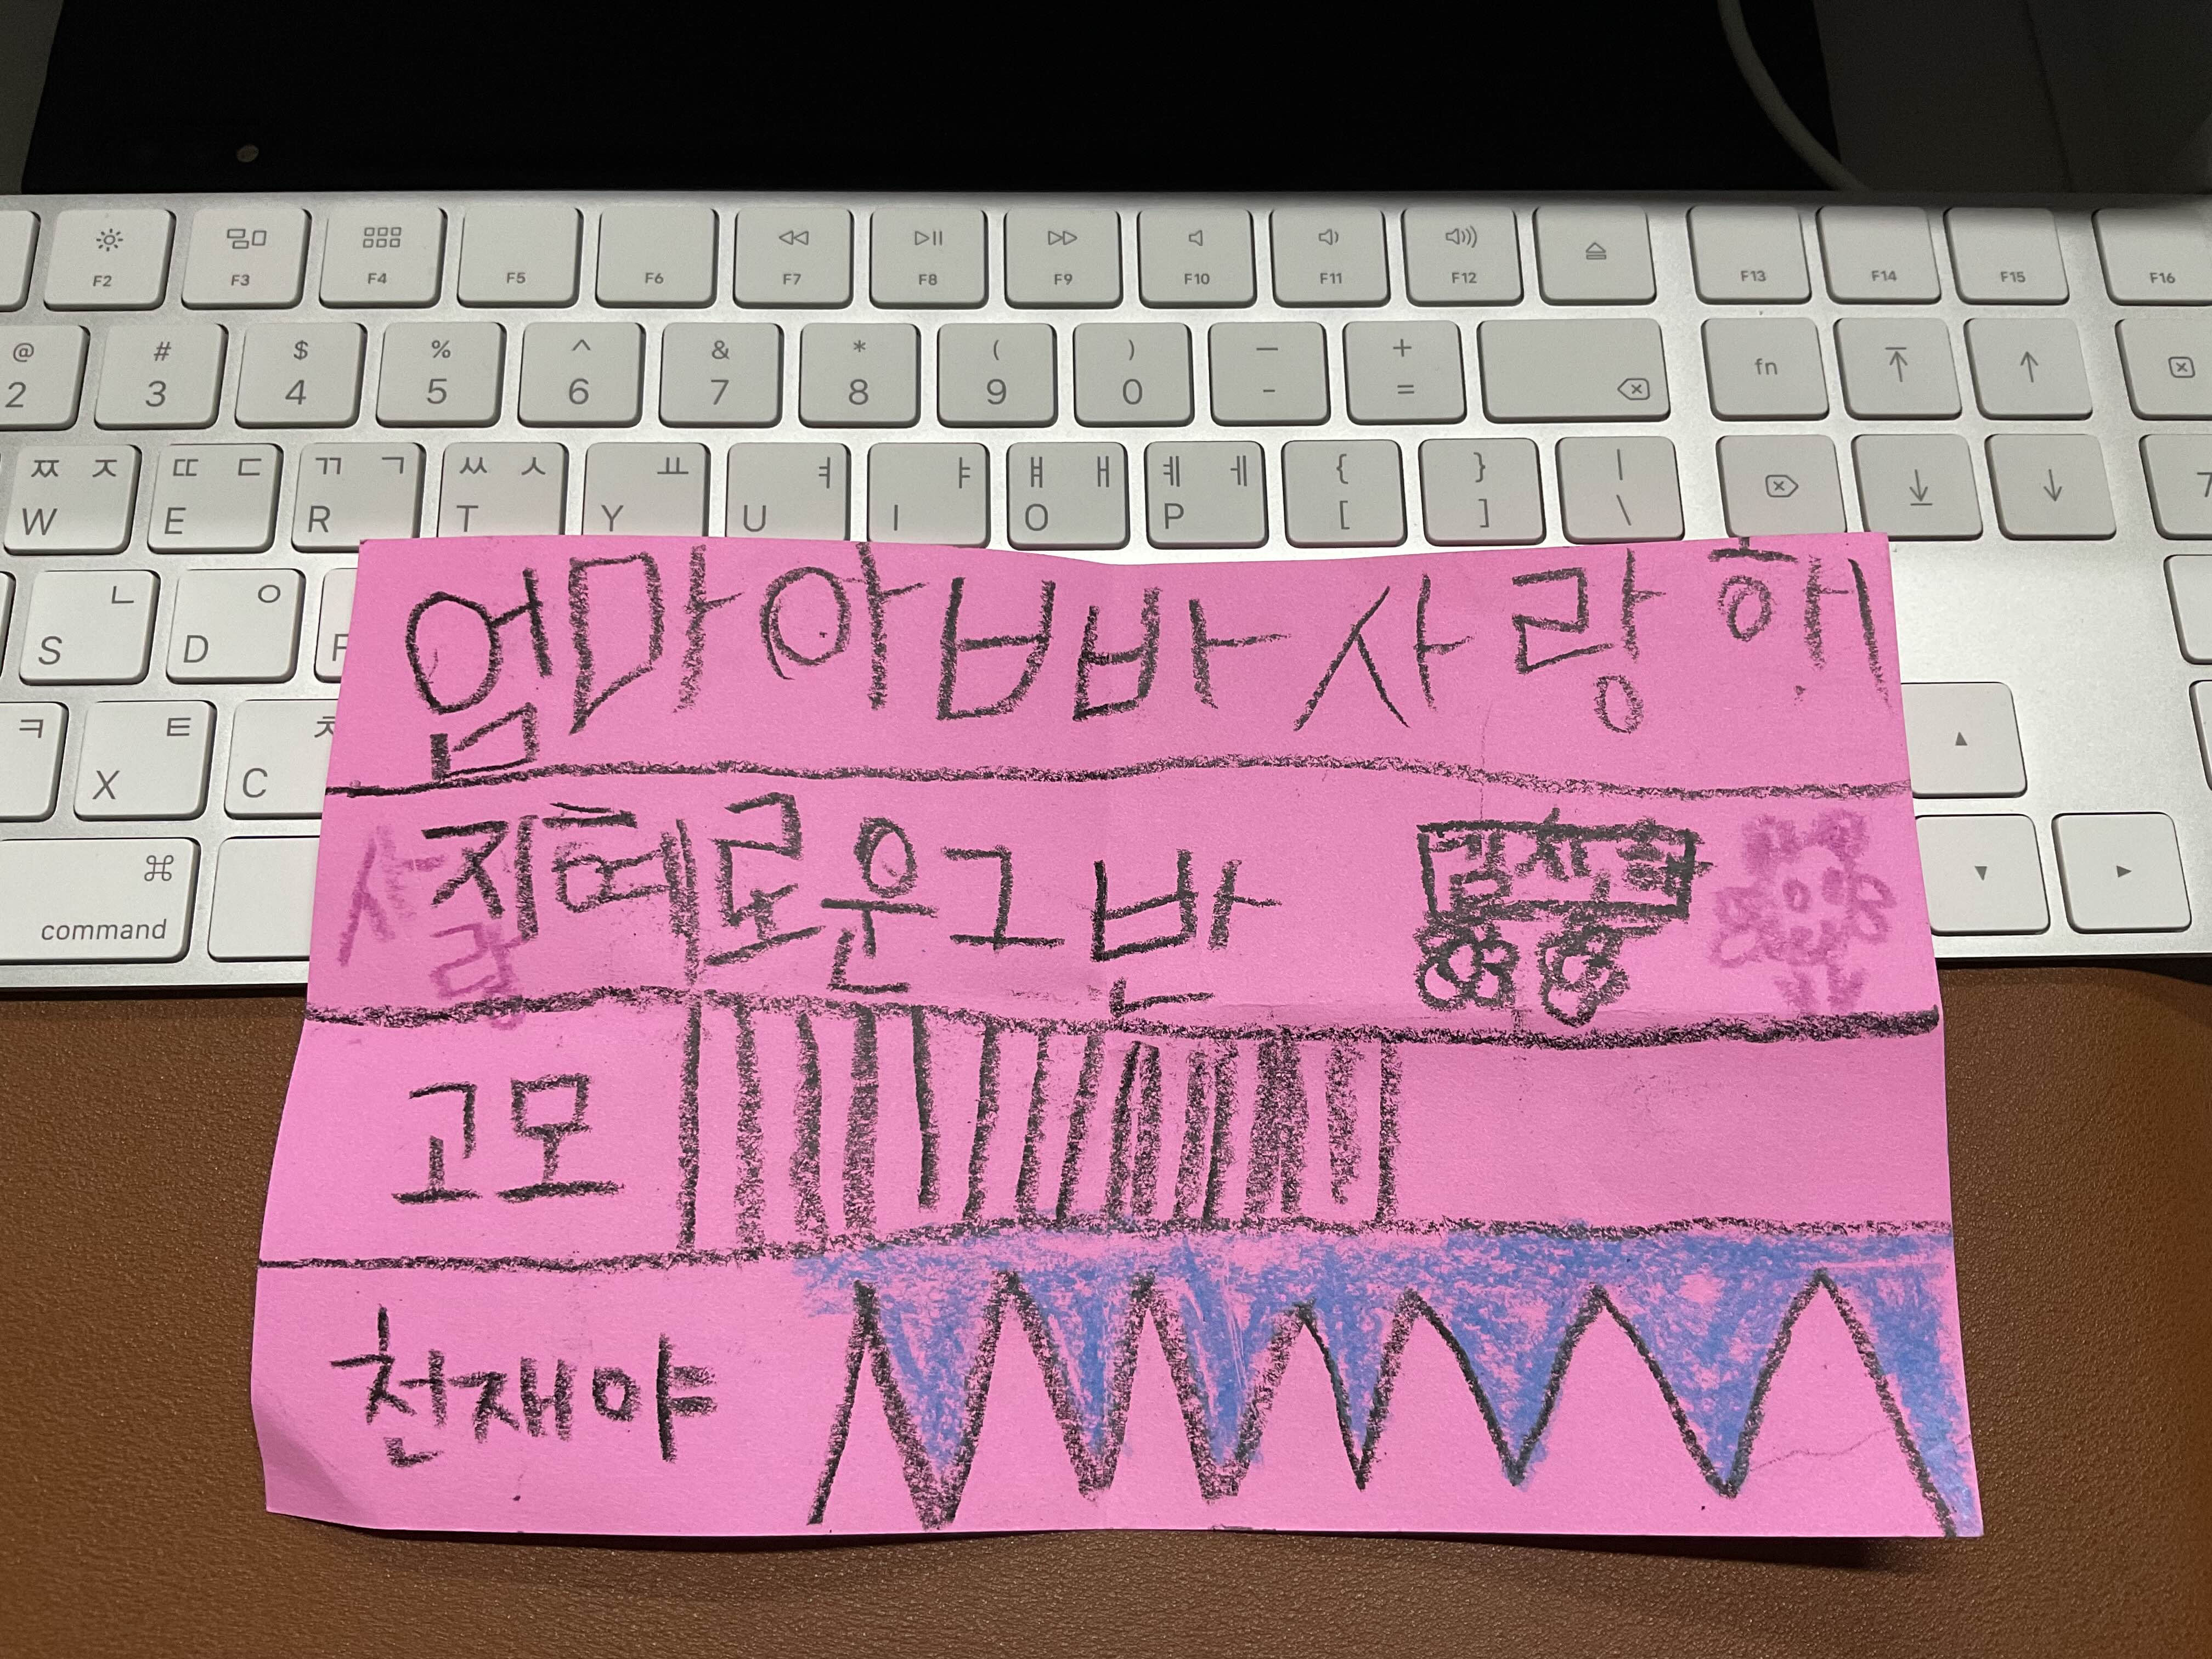 F2 F3 F4 F5 F6 F7 F8 F9 F10 F11 F12 F13 F14 F15 F16
@ # $ % ^ & * ( ) — +
2 3 4 5 6 7 8 9 0 - = fn
ㅉ ㅈ ㄸ ㄷ ㄲ ㄱ ㅆ ㅅ ㅛ ㅕ ㅑ ㅒ ㅐ ㅖ ㅔ { } |
W E R T Y U I O P [ ] \ 7
ㄴ ㅇ
S D F
ㅋ ㅌ ㅊ
X C
⌘
command
엄마아빠사랑해
사랑
지혜로운그반
고모
천재야